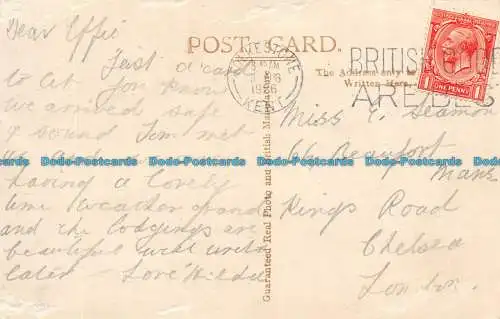 Dear Effie
Just a card
to let you know
we arrived safe
& sound Jim met
us
having a lovely
time weather grand
and the lodgings are
beautiful will write
later Love Hilda
POST CARD.
The Address only to be
Written Here.
FOLKESTONE
KENT
BRITISH
ARE BEST
ONE PENNY
Guaranteed Real Photo and British Manufacture
Miss E. Seamon
66 Beaufort
Mans
Kings Road
Chelsea
London.
Dodo-Postcards Dodo-Postcards Dodo-Postcards Dodo-Postcards Dodo-Postcards Dodo-Postcards